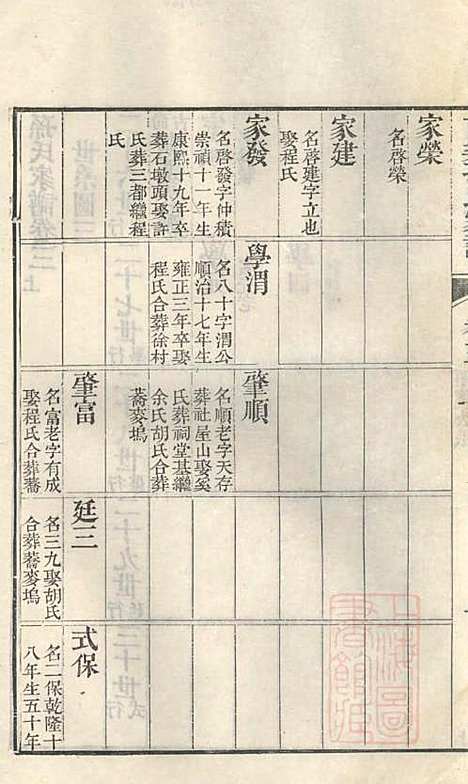 家榮
名啓榮
家建
名啓建字立也
娶程氏
家發
名啓發字仲積
崇禎十一年生
康熙十九年卒
葬石墩頭娶許
氏葬三都繼程
氏
學渭
名八十字渭公
順治十七年生
雍正三年卒娶
程氏合葬徐村
肇順
名順老字天存
葬社屋山娶奚
氏葬祠堂基繼
余氏胡氏合葬
蕎麥塢
肇富
名富老字有成
娶程氏合葬蕎
廷三
名三九娶胡氏
合葬蕎麥塢
式保
名二保乾隆十
八年生五十年
上海圖書館藏